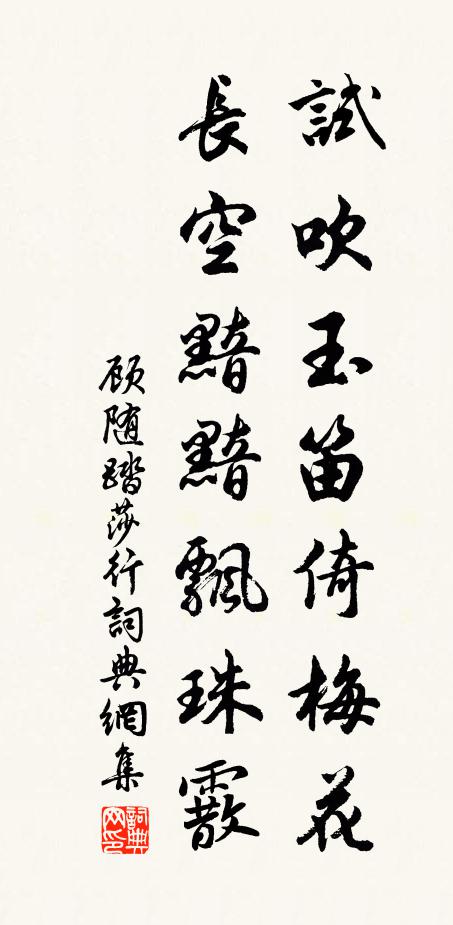 試吹玉笛倚梅花
長空黯黯飄珠霰
顾随踏莎行詞典網集
詞典网印